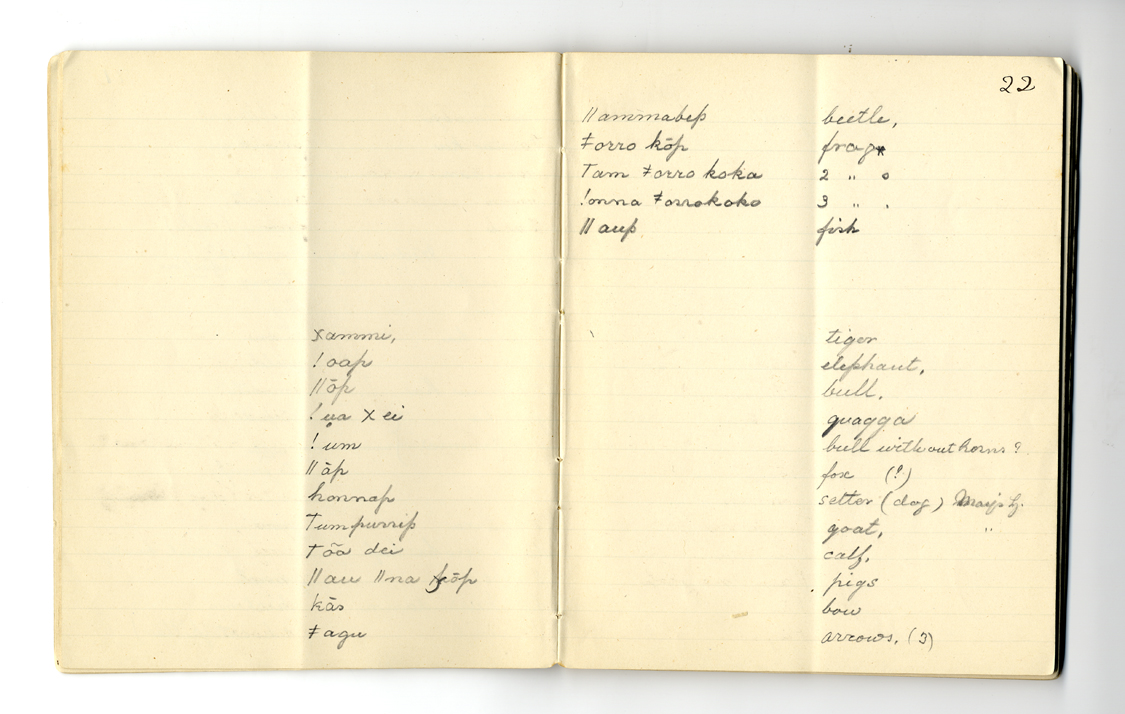 22
ǁammabep beetle,
ǂorro kōp frog
Tam ǂorro koka 2 "
!onna ǂorrokoko 3 "
ǁaup fish
xammi, tiger
!oap elephant,
ǁōp bull,
!u̥a X ei quagga
!um bull without horns ?
ǁāp fox (?)
honnap setter (dog)
Tumpurrip goat, "
Tõã dei calf,
ǁau ǁna pigs
kās bow
ǂagu arrows, (3)